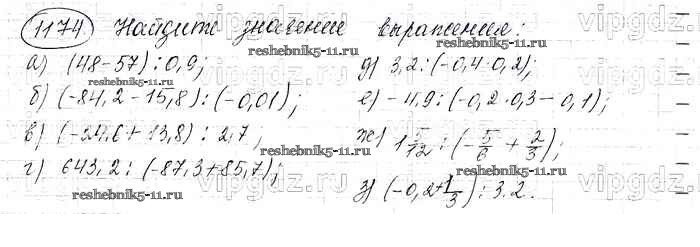 1174. Найдите значение выражения:
а) (48-57):0,9;
б) (-84,2-15,8):(-0,01);
в) (-24,6+13,8):2,7;
г) 643,2:(-87,3+85,7);
д) 3,2:(-0,4·0,2);
е) -4,9:(-0,2·0,3-0,1);
ж) 1 5/12:(-5/6+2/3);
з) (-0,2+1/3):3.2.
reshebnik5-11.ru
reshebnik5-11.ru
reshebnik5-11.ru
reshebnik5-11.ru
reshebnik5-11.ru
reshebnik5-11.ru
reshebnik5-11.ru
vipgdz.ru
vipgdz.ru
vipgdz.ru
vipgdz.ru